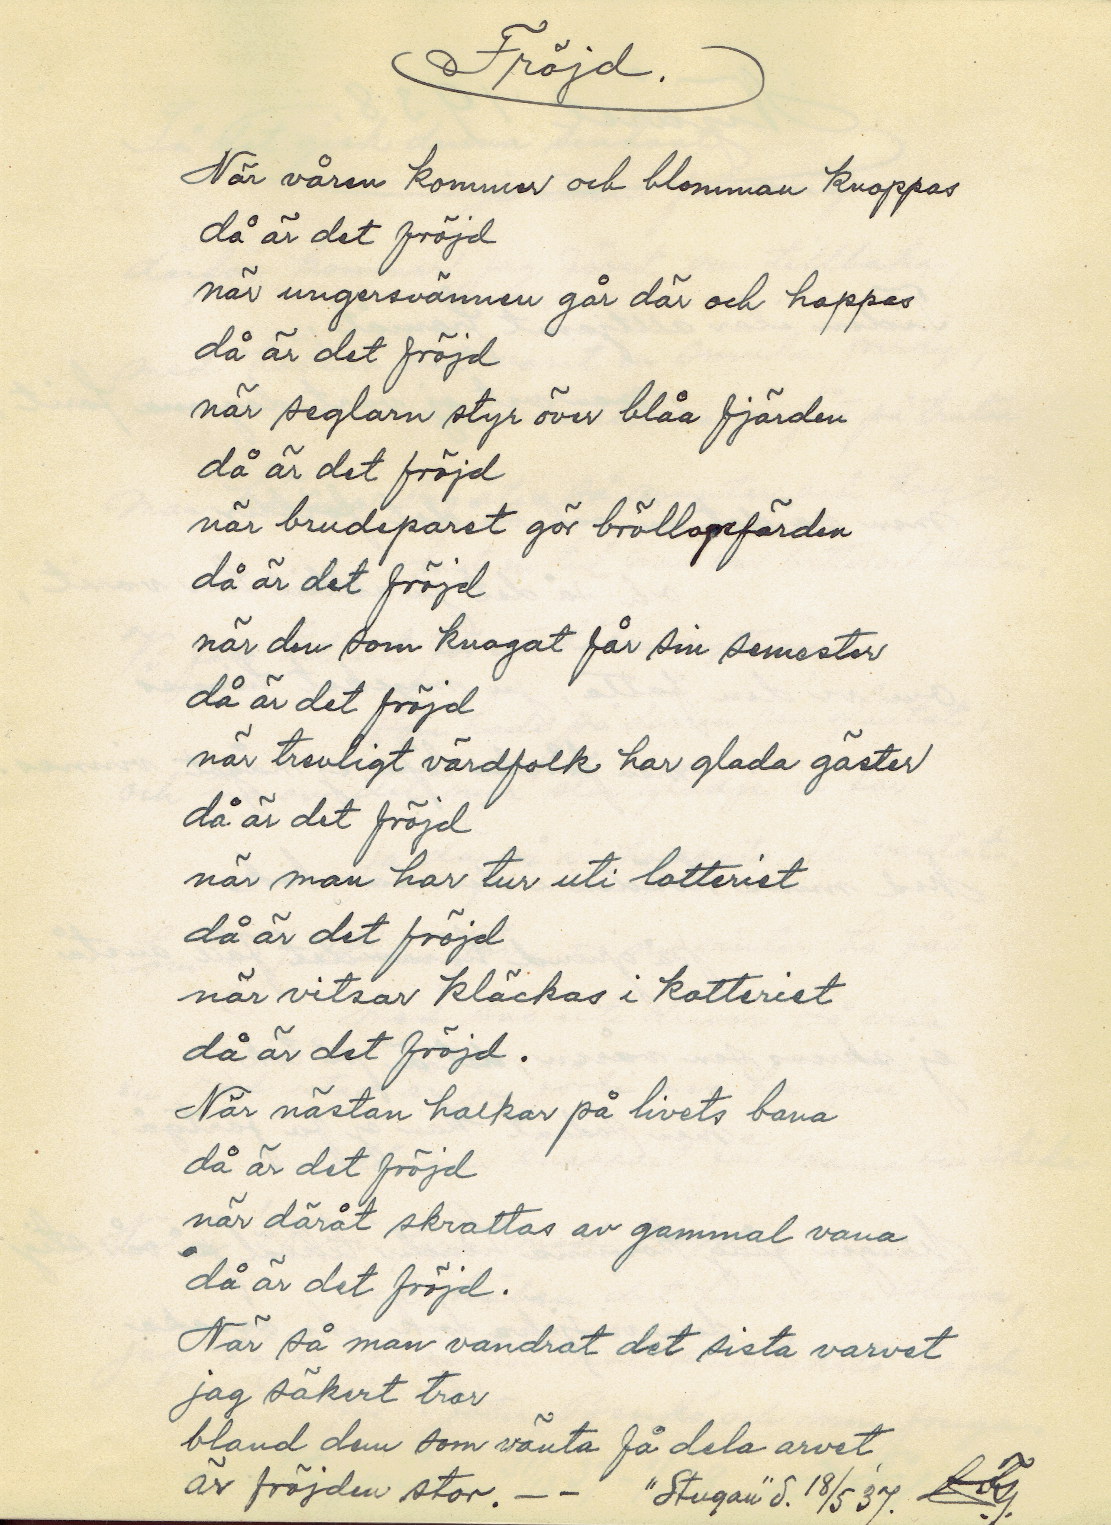 Fröjd.
När våren kommer och blomman knoppas
då är det fröjd
när ungersvännen går där och hoppas
då är det fröjd
när seglarn styr över blåa fjärden
då är det fröjd
när brudeparet gör bröllopsfärden
då är det fröjd
när den som knogat får sin semester
då är det fröjd
när trevligt värdfolk har glada gäster
då är det fröjd
när man har tur uti lotteriet
då är det fröjd
när vitsar kläckas i kotteriet
då är det fröjd.
När nästan halkar på livets bana
då är det fröjd
när däråt skrattas av gammal vana
då är det fröjd.
När så man vandrat det sista varvet
jag säkert tror
bland dem som vänta få dela arvet
är fröjden stor. — — "Stugan" d. 18/5 37.